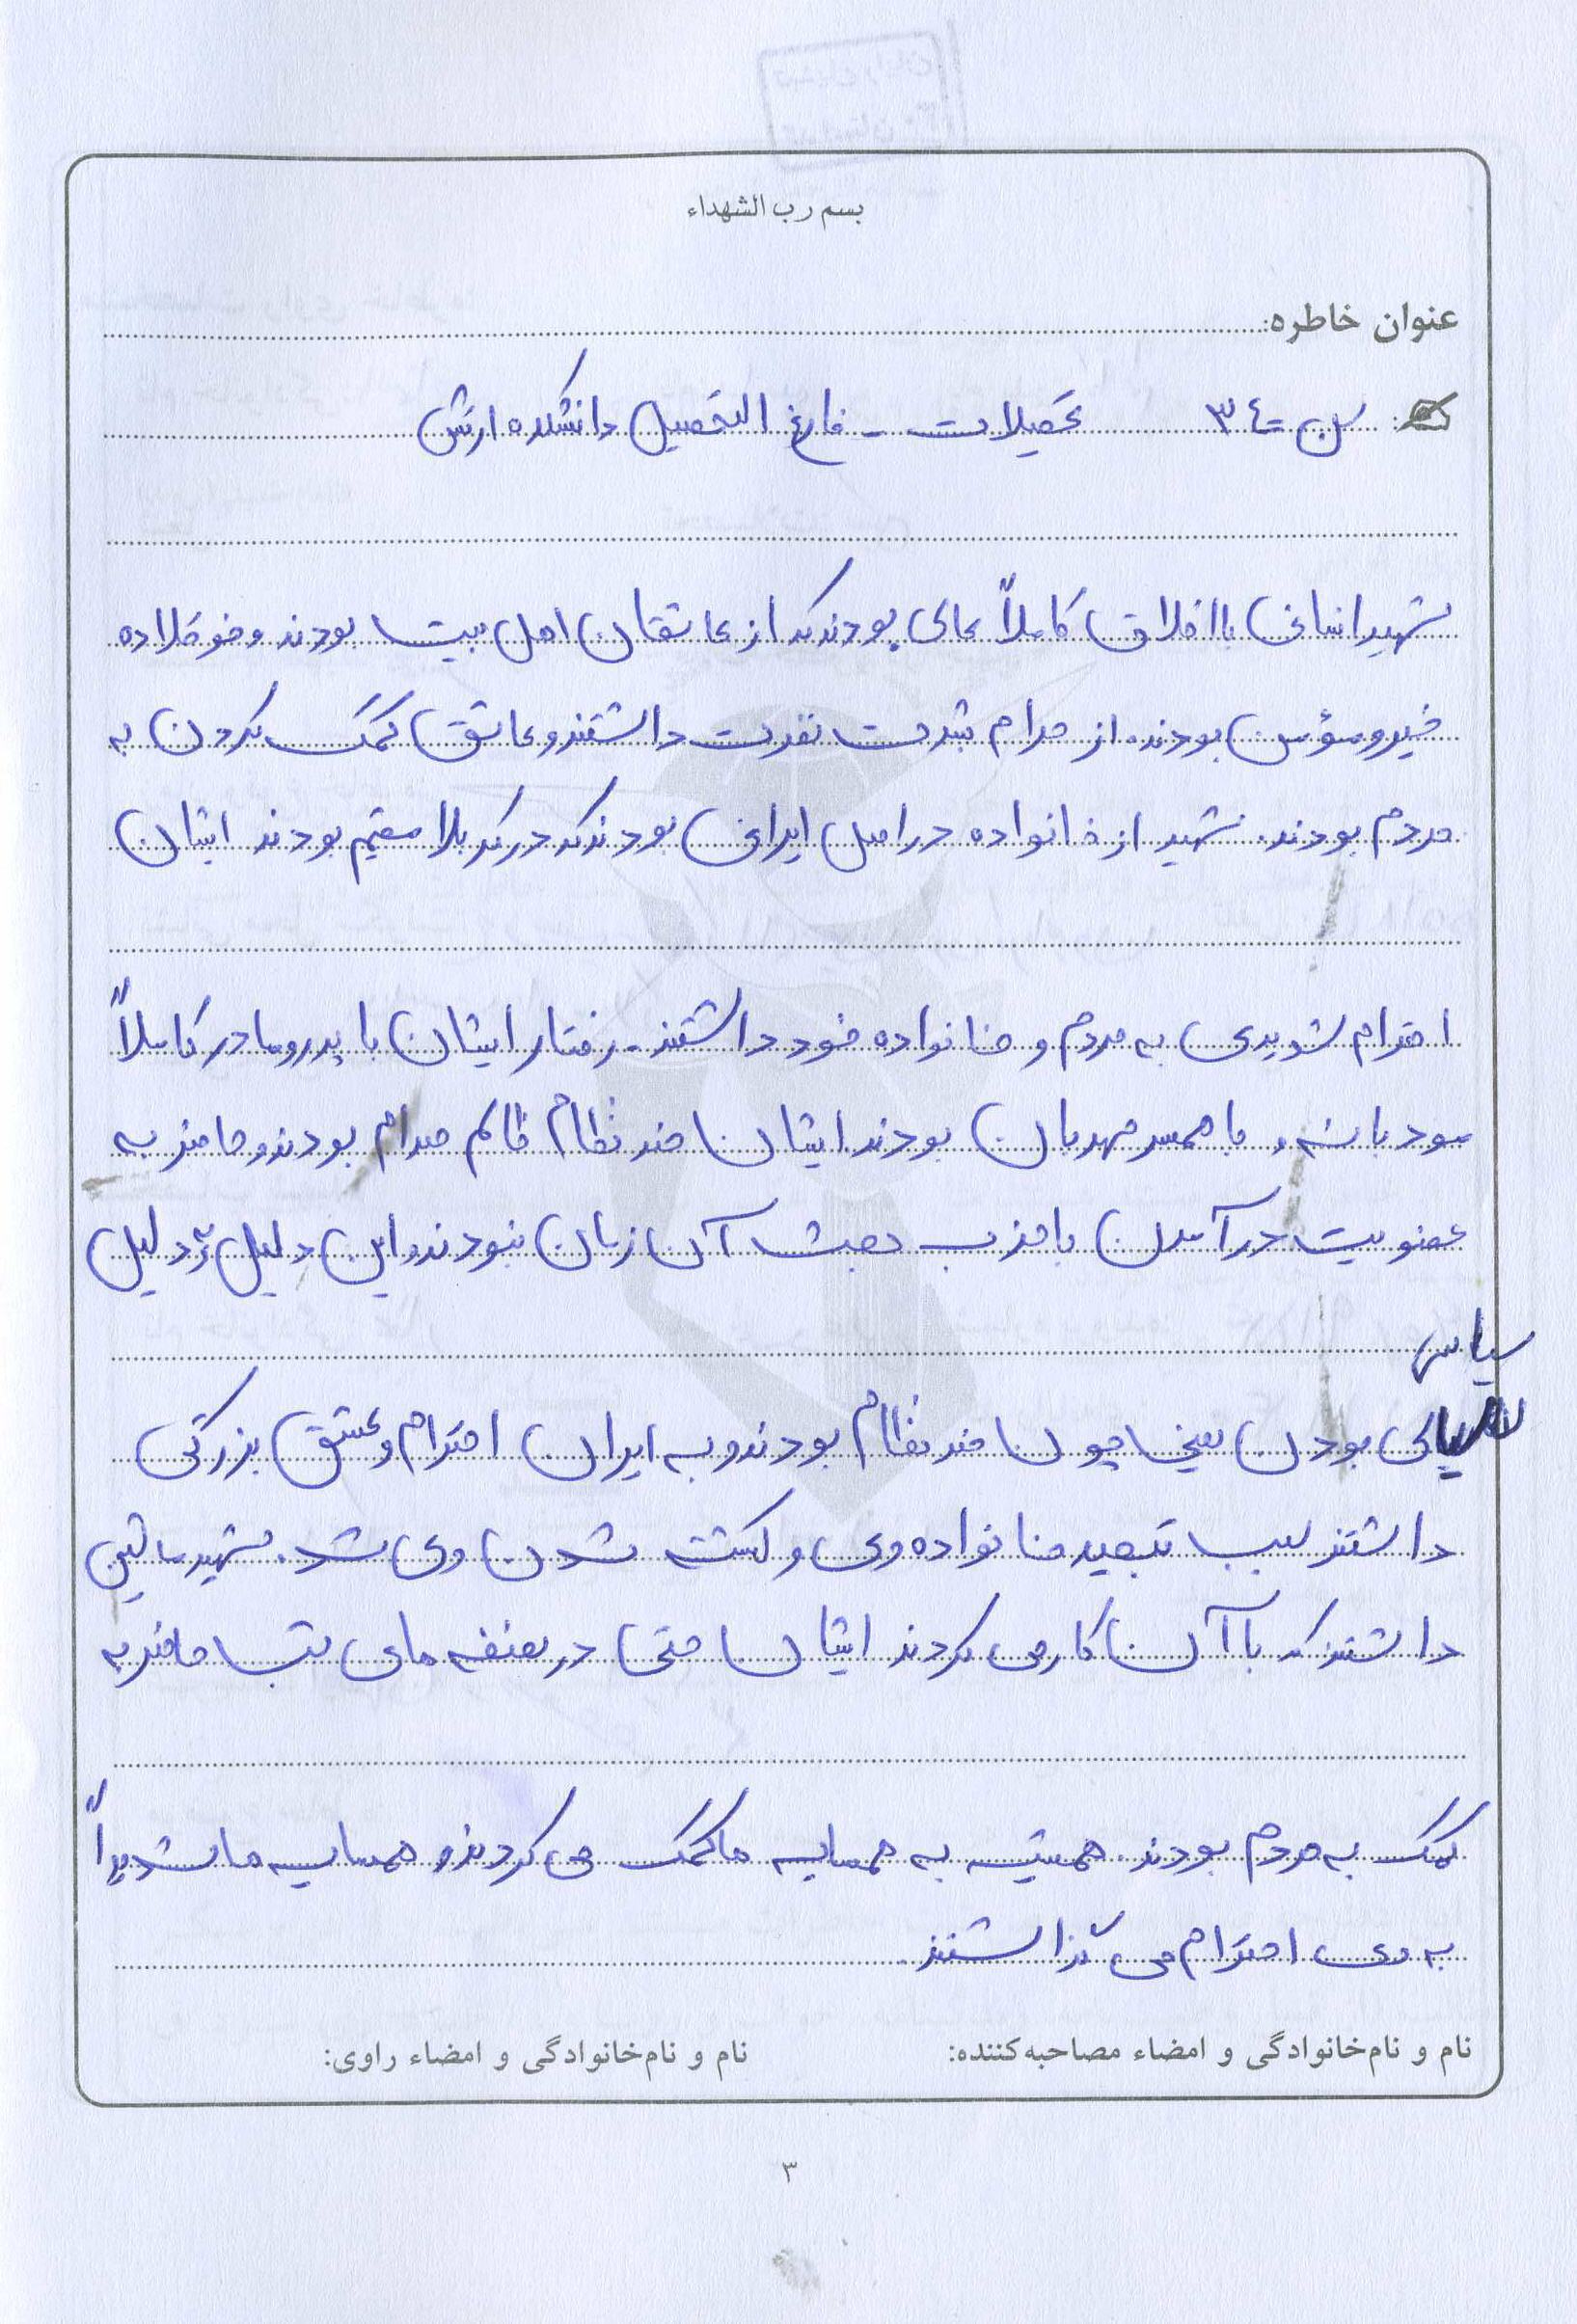 بسم رب الشهداء
عنوان خاطره:
سن = ٣٤ تحصیلات - فارغ التحصیل دانشکده ارتش
شهید انسانی با اخلاق کاملاً عالی بودند که از عاشقان اهل بیت بودند و فوق‌العاده
خیر و مؤمن بودند. از صدام بشدت نفرت داشتند و عاشق کمک کردن به
مردم بودند. شهید از خانواده در اصل ایرانی بودند که در کربلا مقیم بودند ایشان
احترام شدیدی به مردم و خانواده خود داشتند. رفتار ایشان با پدر و مادر کاملاً
مودبانه و با همسر مهربان بودند. ایشان ضد نظام ظالم صدام بودند و حاضر به
عضویت در آمدن با حزب بعث آن زمان نبودند و این دلیل و دلیل
سیاسی
بودن یعنی چون ضد نظام بودند و به ایران احترام و عشق بزرگی
داشتند سبب تبعید خانواده وی و کشته شدن وی شد. شهید ماشین
داشتند که با آن کار می کردند ایشان حتی در نصفه های شب حاضر به
کمک به مردم بودند. همیشه به همسایه ها کمک می کردند و همسایه ها شدیداً
به وی احترام می گذاشتند.
نام و نام‌خانوادگی و امضاء مصاحبه‌کننده:
نام و نام‌خانوادگی و امضاء راوی:
۳